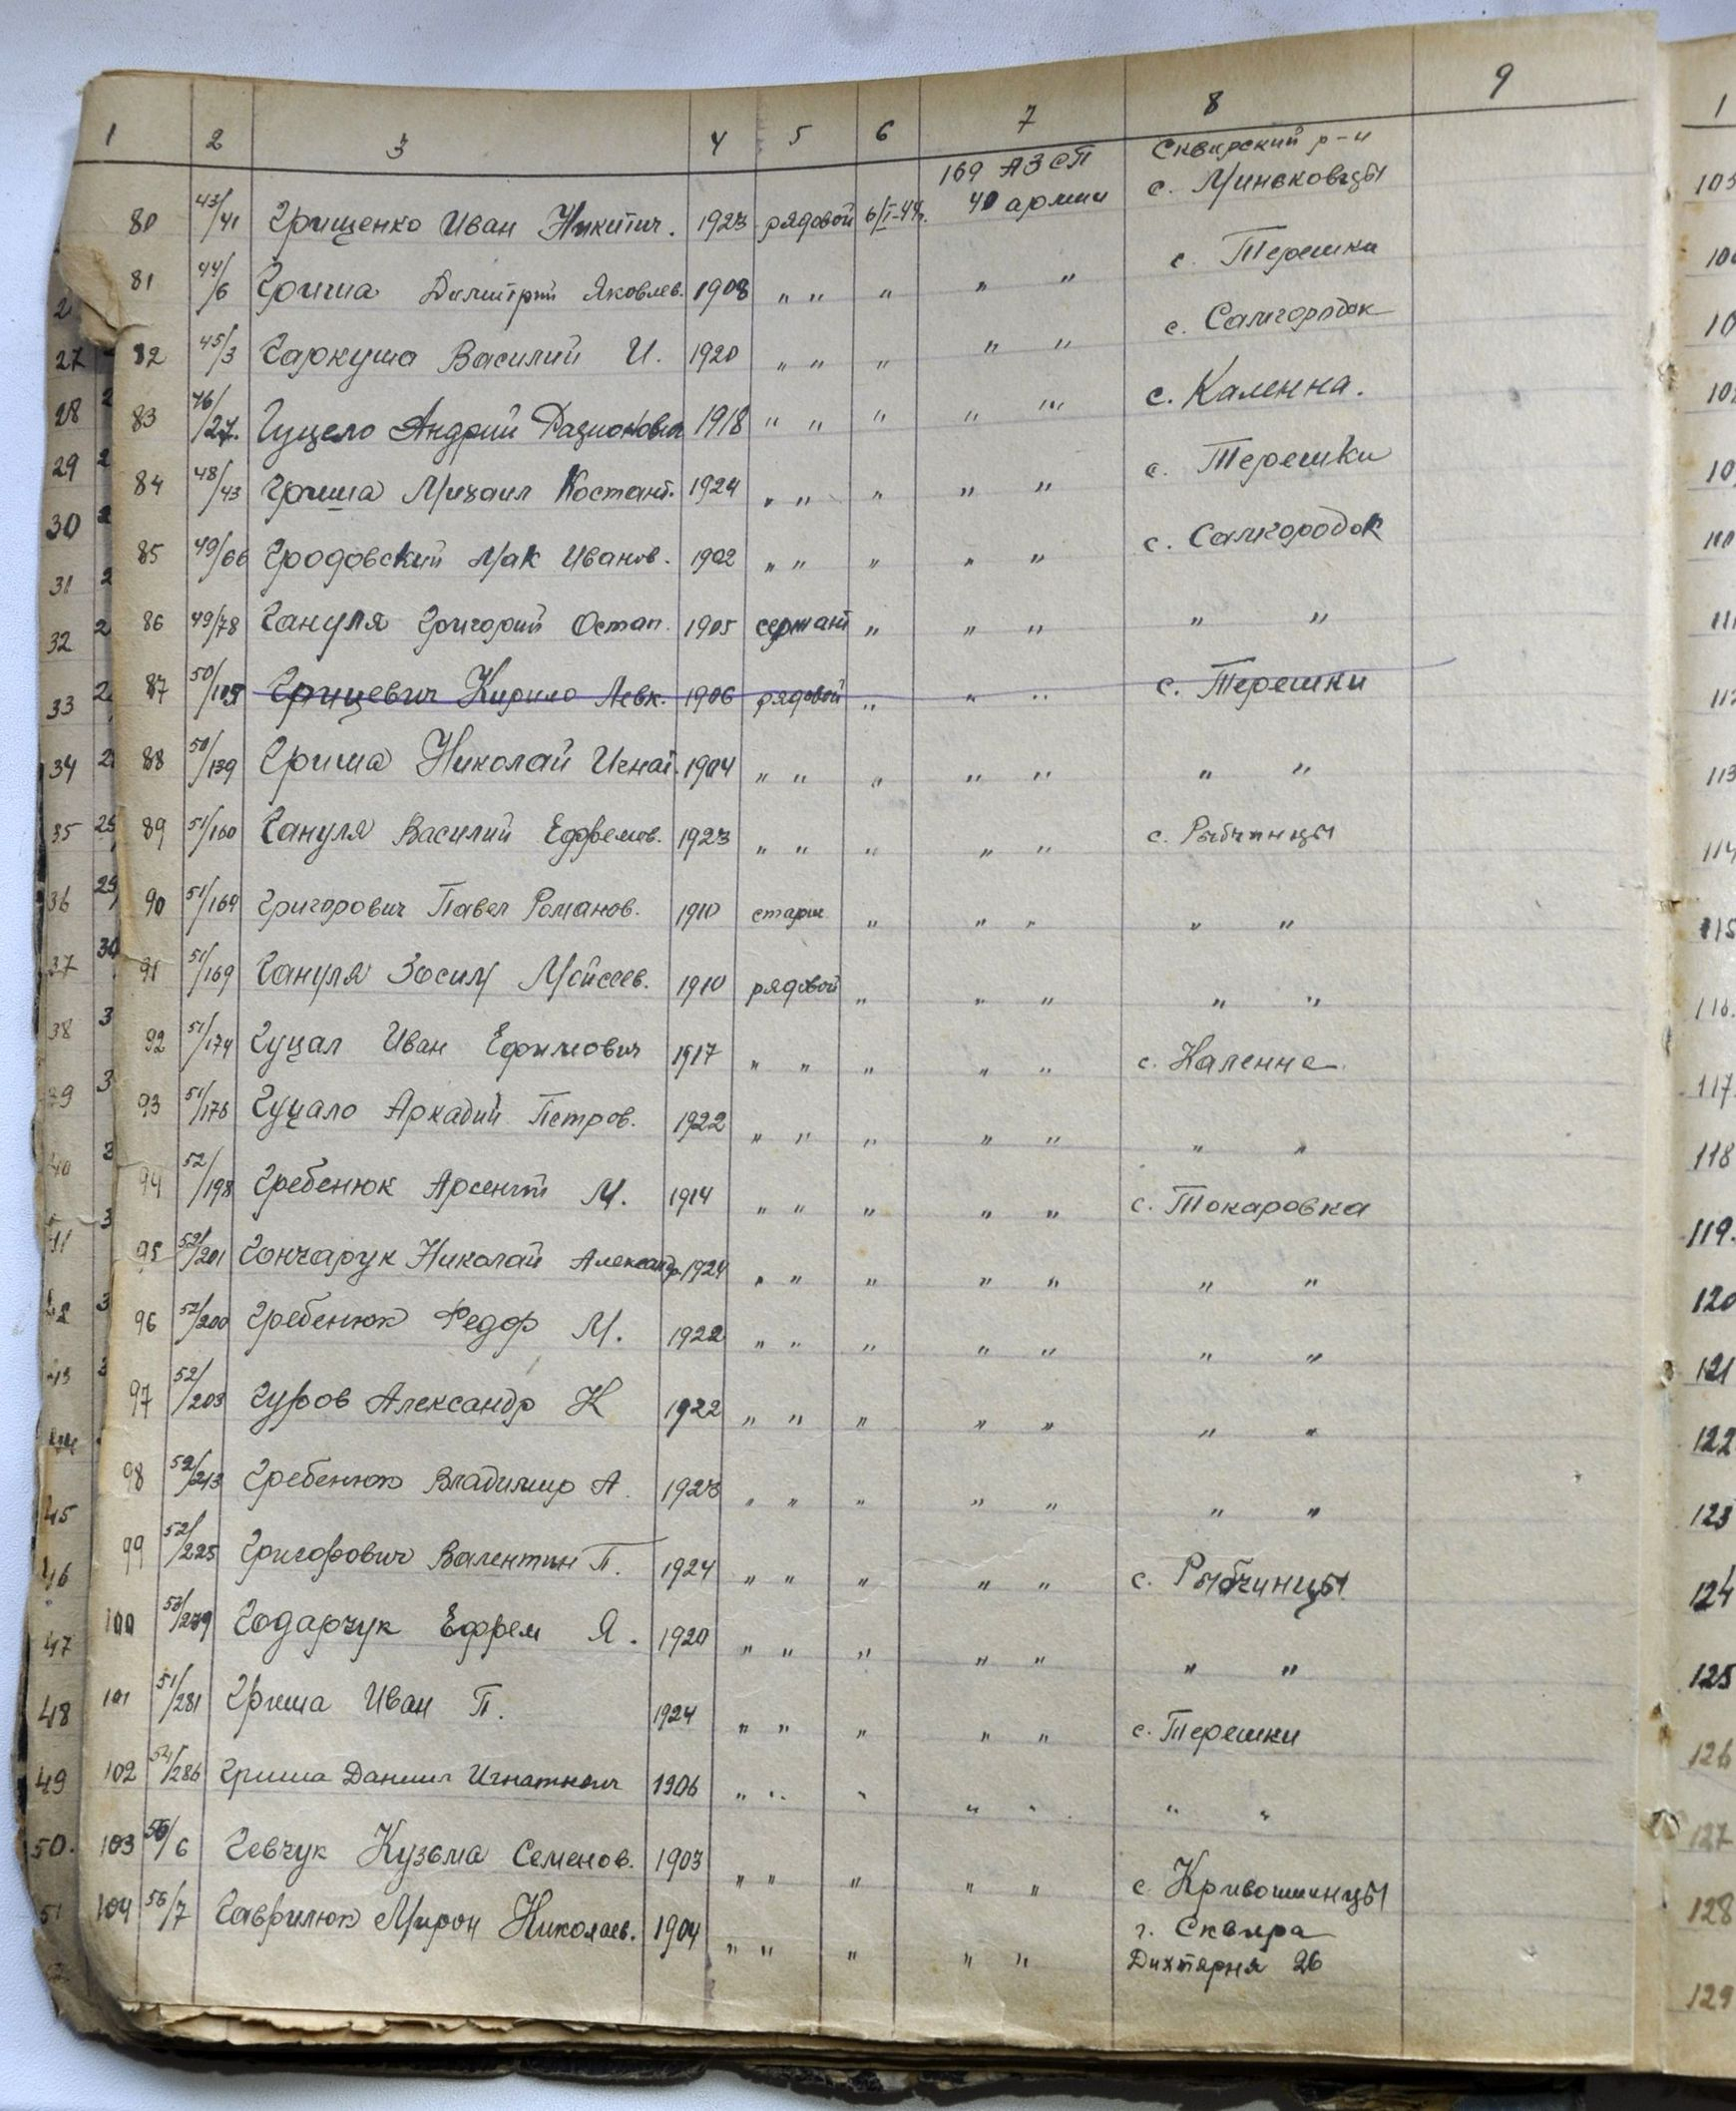 1 2 3 4 5 6 7 8 9
169 АЗСП Сквирский р-н
80 43/41 Грищенко Иван Никитич. 1923 рядовой 6/I-44г. 40 армии с. Миньковцы
81 44/6 Гриша Димитрий Яковлев. 1908 " " " " " с. Терешки
82 45/3 Гаркуша Василий И. 1920 " " " " " с. Самгородок
83 46/27. Гуцело Андрий 1918 " " " " " с. Каленна.
84 48/43 Гриша Михаил Костант. 1924 " " " " " с. Терешки
85 49/66 Гродовский Мак Иванов. 1902 " " " " " с. Самгородок
86 49/78 Гануля Григорий Остап. 1905 сержант " " " " "
87 50/ Грицевич Кирило Левк. 1906 рядовой " " " с. Терешки
88 50/139 Гриша Николай Игнат. 1904 " " " " " " "
89 51/160 Гануля Василий Ефремов. 1923 " " " " " с. Рыбчинцы
90 51/164 Григорович Павел Романов. 1910 старш " " " " "
91 51/169 Гануля Зосим Мойсеев. 1910 рядовой " " " " "
92 51/174 Гуцал Иван Ефимович 1917 " " " " " с. Каленне
93 51/178 Гуцало Аркадий Петров. 1922 " " " " " " "
94 52/198 Гребенюк Арсентий М. 1914 " " " " " с. Токаровка
95 52/201 Гончарук Николай Александр. 1924 " " " " " " "
96 52/200 Гребенюк Федор М. 1922 " " " " " " "
97 52/203 Гуров Александр К 1922 " " " " " " "
98 52/213 Гребенюк Владимир А. 1923 " " " " " " "
99 52/225 Григорович Валентин П. 1924 " " " " " с. Рыбчинцы
100 53/279 Годарчук Ефрем Я. 1920 " " " " " " "
101 51/281 Гриша Иван П. 1924 " " " " " с. Терешки
102 54/286 Гриша Даниил Игнатович 1906 " " " " " " "
103 56/6 Гевчук Кузьма Семенов. 1903 " " " " " с. Кривошиинцы
104 56/7 Гаврилюк Мирон Николаев. 1904 " " " " " г. Сквира
Дихтярня 26